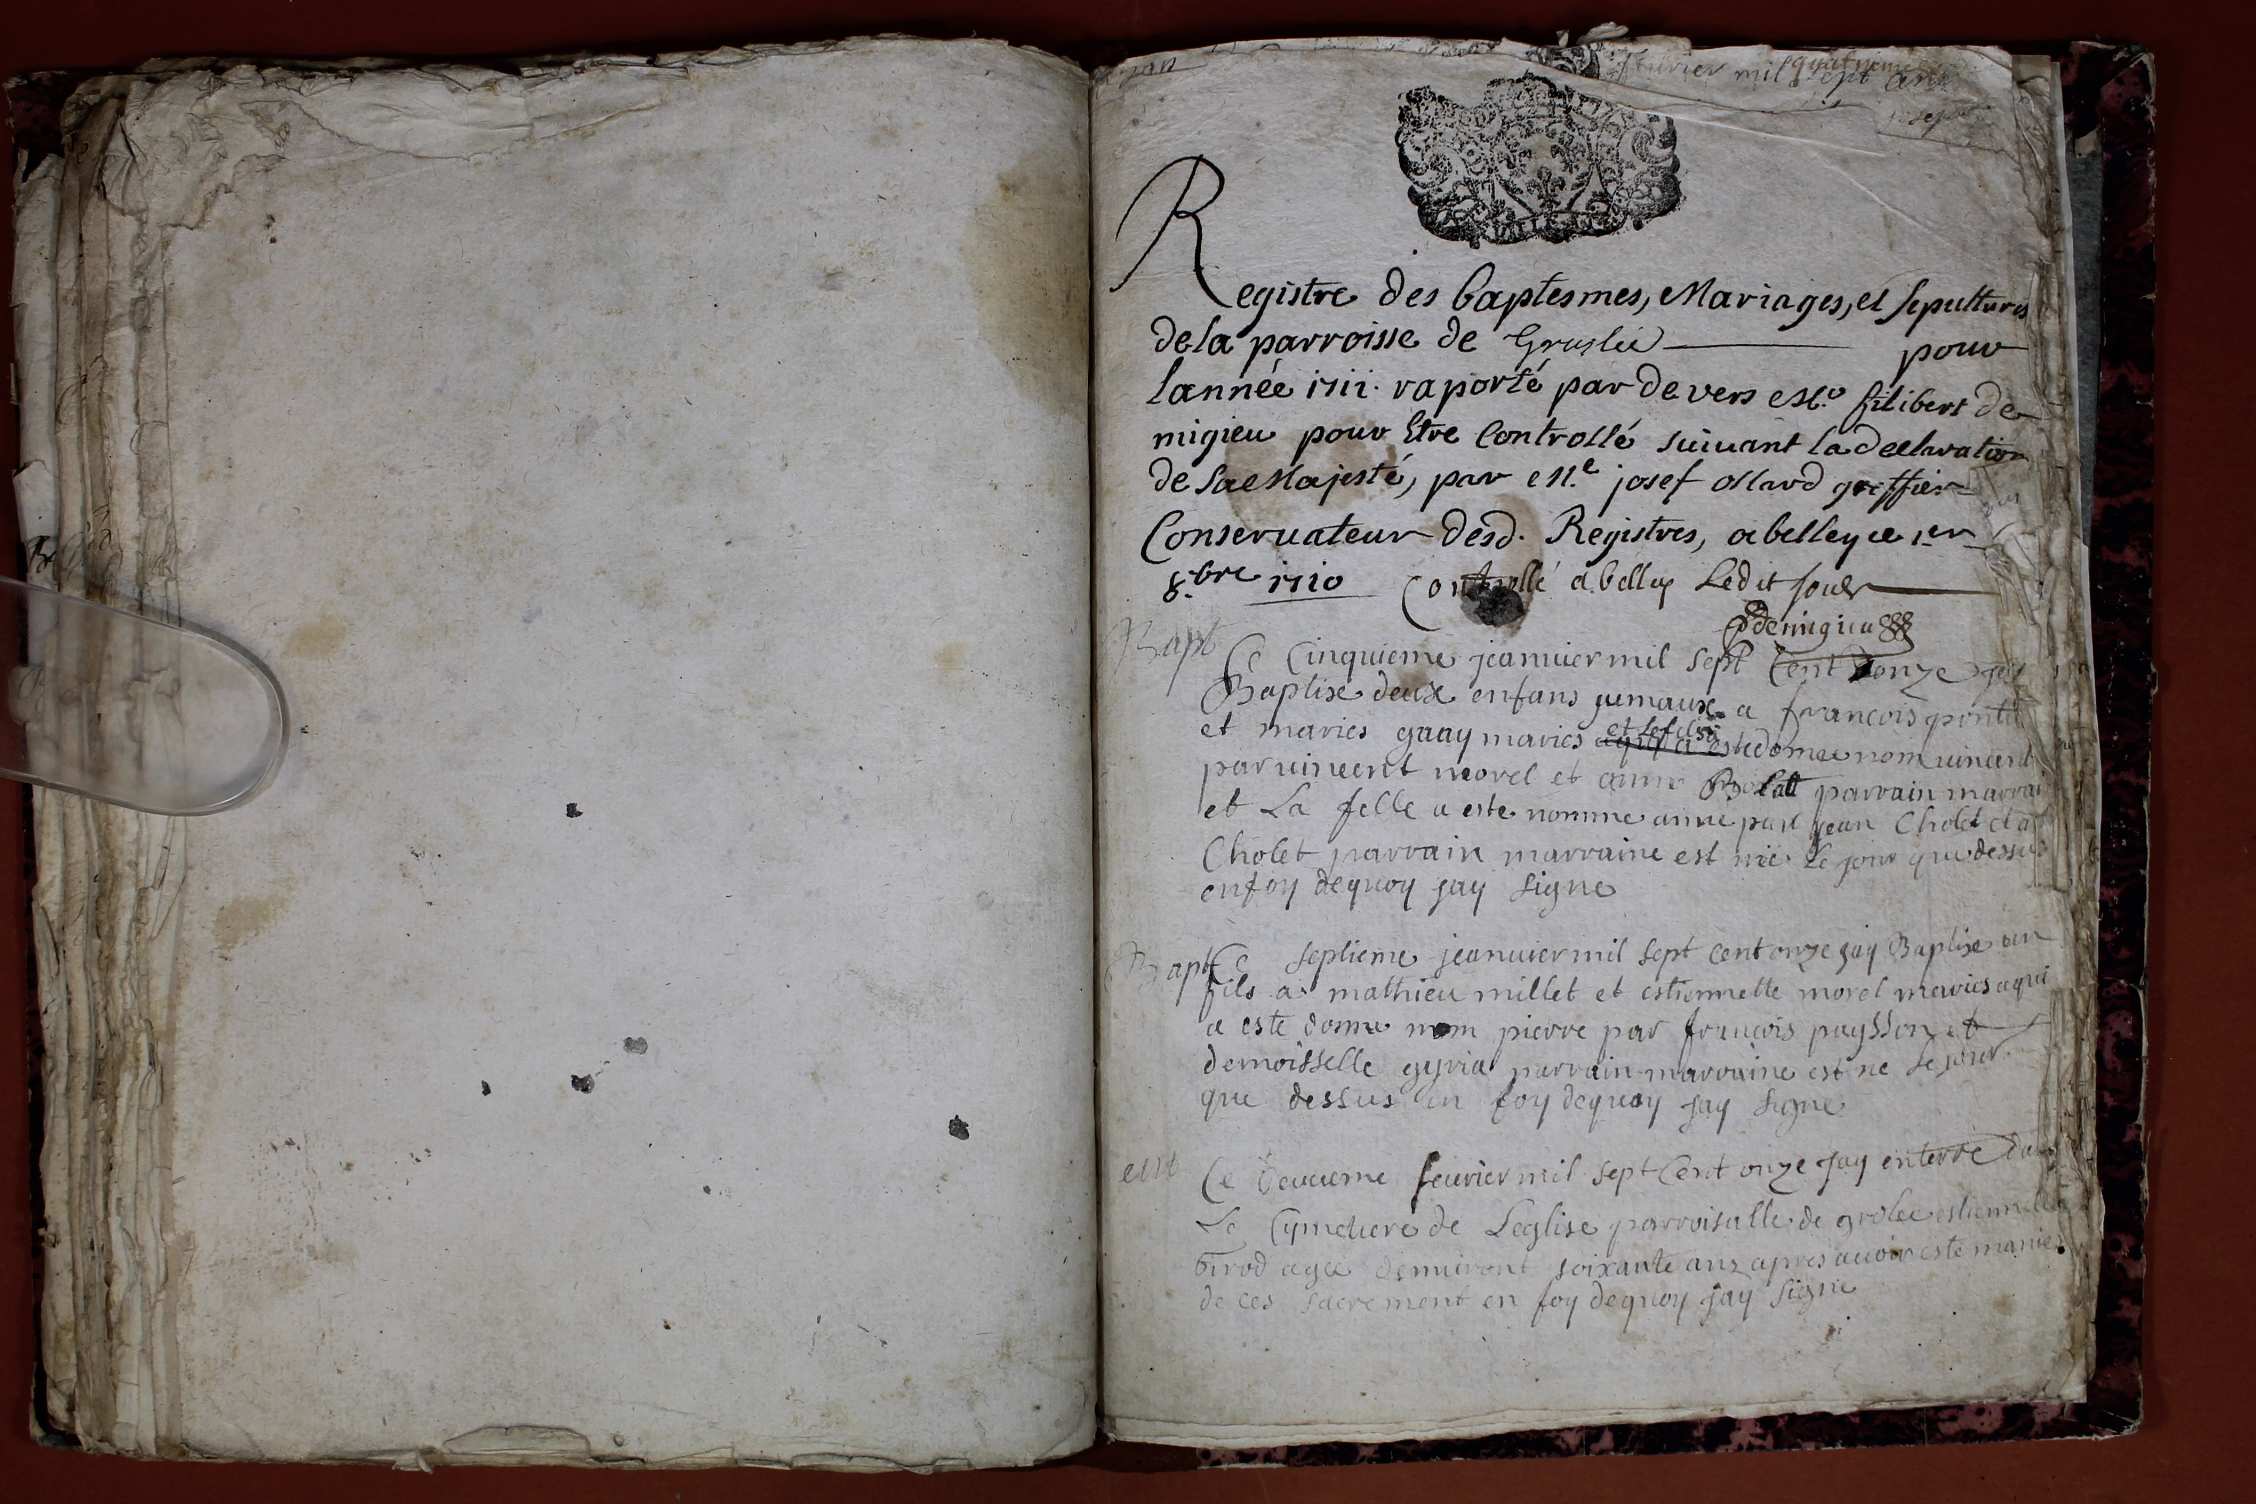 feurier mil sept
Registre des baptesmes, Mariages, et sepultures
de la parroisse de Groslée pour
lannée 1711. raporté par devers Me. filibert de
migieu pour Etre Controllé suivant la declaration
de Sa Majesté, par Me. josef ollard greffier
Conservateur desd. Registres, a belley ce 1er
8.bre 1710 Controllé a belley Ledit jour
Demigieu
Bapt Ce Cinquieme jeanuier mil sept Cent onze jay
Baptise deux enfans jumaux a francois
et maries guay maries et le fils a este donne nom uincent
par uincent morel et anne parrain marrai
et La felle a este nomme anne par jean Cholet et a
Cholet parrain marraine est nie Le jour que dessus
en foy de quoy jay signe
Bapt Ce septieme jeanuier mil sept cent onze jay Baptise un
fils a mathieu millet et estiennette morel maries a qui
a este donne nom pierre par francois paysson et
demoisselle gyria parrain marraine est ne Le jour
que dessus en foy de quoy jay signe
ent Ce deuxieme feurier mil sept Cent onze jay enterre dans
Le Cymetiere de Leglise parroisalle de grolee estiennette
birod agee denuiront soixante ans apres auoir este manie
de ces sacrement en foy de quoy jay signe